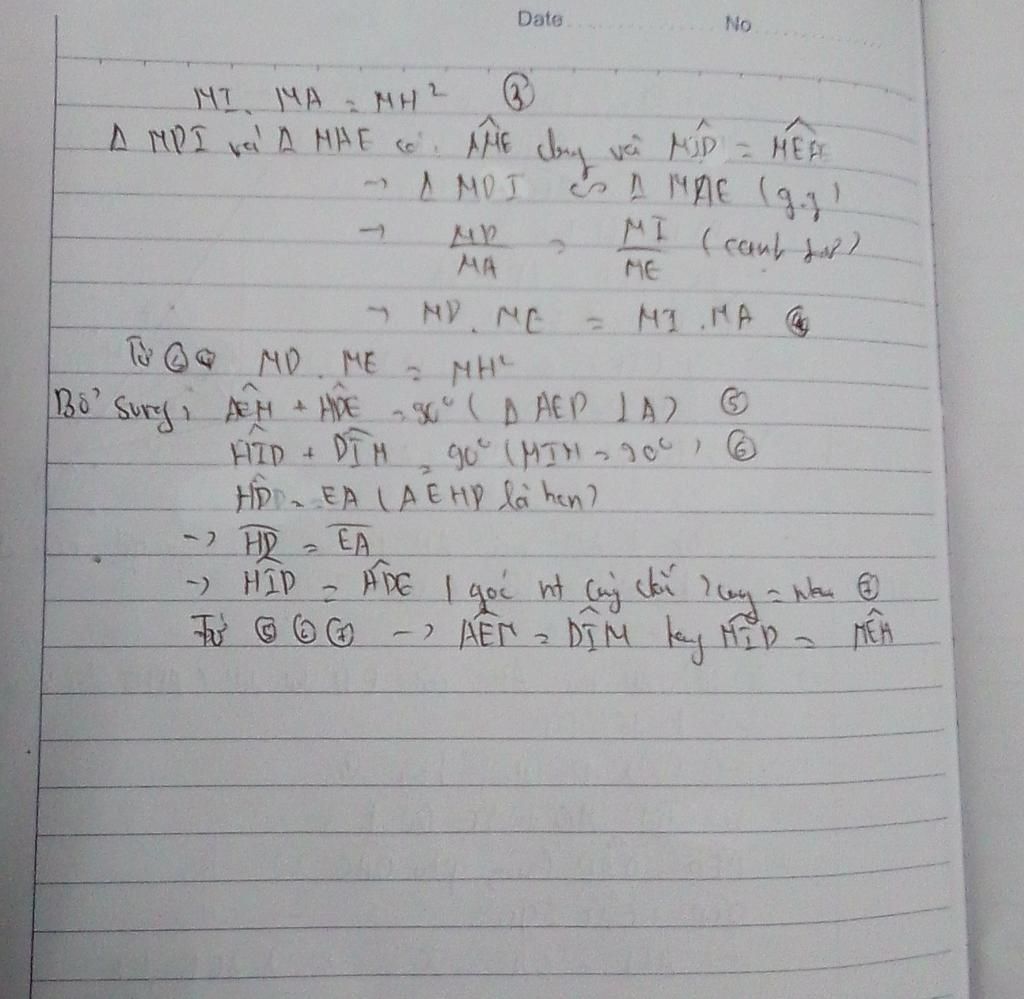 Date No
MI. MA = MH² ③
Δ MDI và Δ MAE có: AM̂E chung và MÎD = MÊA
→ Δ MDI ∽ Δ MAE (g.g)
→ MD/MA = MI/ME (cạnh)
→ MD. ME = MI .MA ④
Từ ③④ MD. ME = MH²
Bổ sung: AÊM + AD̂E = 90° (Δ AED ⊥ A) ⑤
HÎD + DÎM = 90° ( = 90°) ⑥
HD = EA (AEHD là hcn)
→ HD = EA
→ HÎD = AD̂E (góc nt cùng chắn 2 cung = nhau ⑦
Từ ⑤⑥⑦ → AÊM = DÎM hay MÎD = MÊA